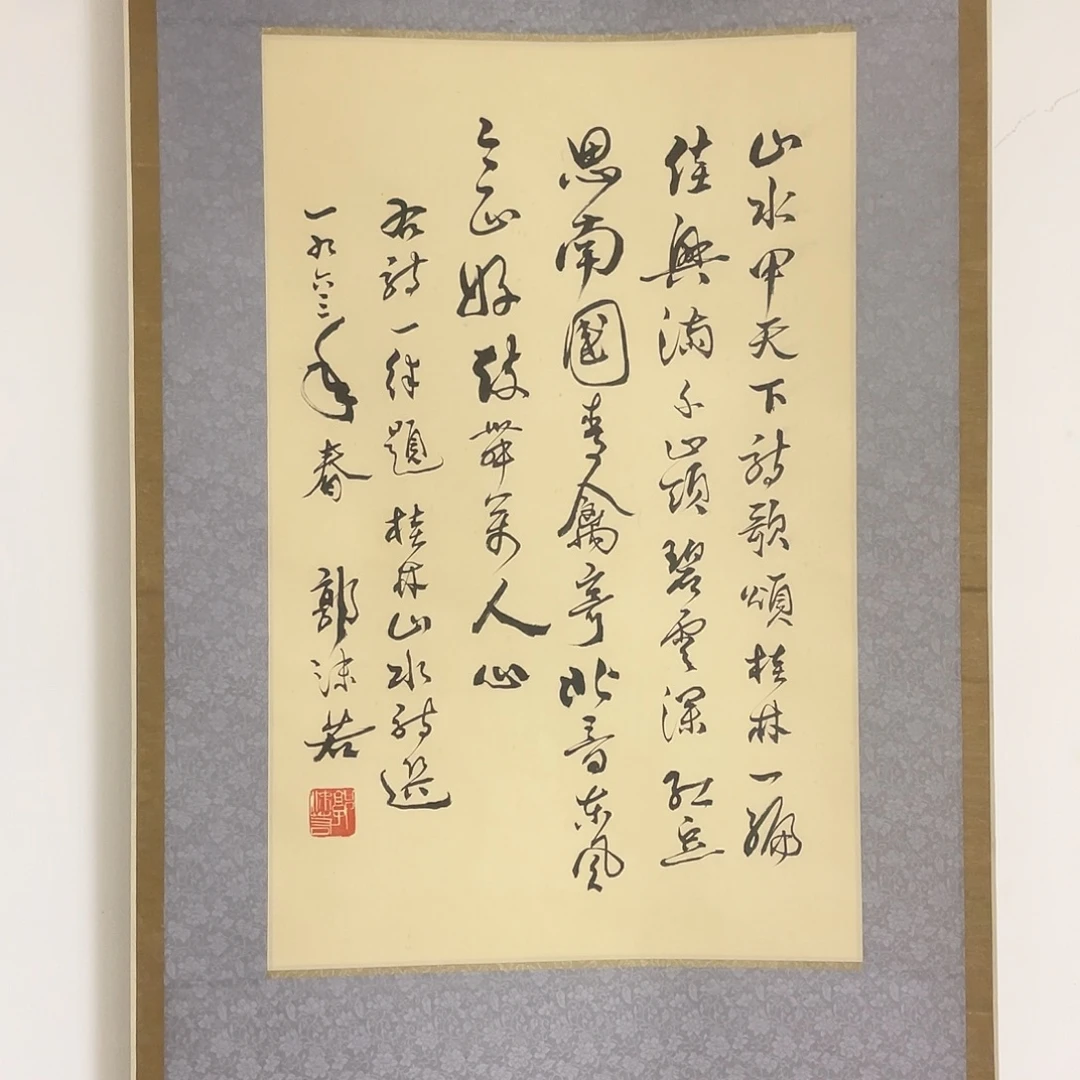 山水甲天下詩歌頌桂林一編
佳興滿千山頭碧雲深紅豆
思南國青禽寄北音东風
今正好鼓舞萬人心
右詩一律題桂林山水詩選
一九六三年春 郭沫若
郭沫若